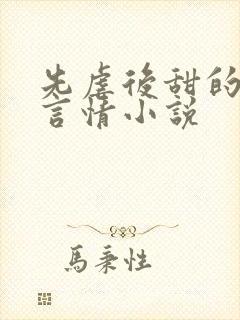 先虐後甜的
言情小說
馬秉性